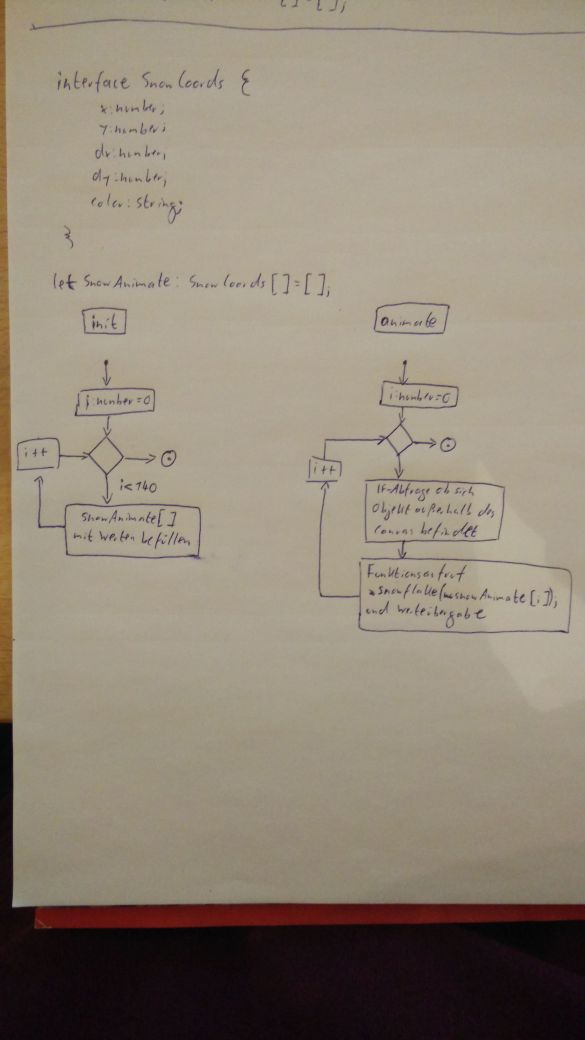 [ ] = [ ];
interface SnowCoords {
x: number;
y: number;
dx: number;
dy: number;
color: string;
}
let SnowAnimate: SnowCoords [ ] = [ ];
init
animate
i: number = 0
i: number = 0
i++
i < 140
snowAnimate [ ]
mit Werten befüllen
i++
If-Abfrage ob sich
Objekt außerhalb des
canvas befindet
Funktionsaufruf
snowflake( snowAnimate [i]);
und Werteübergabe